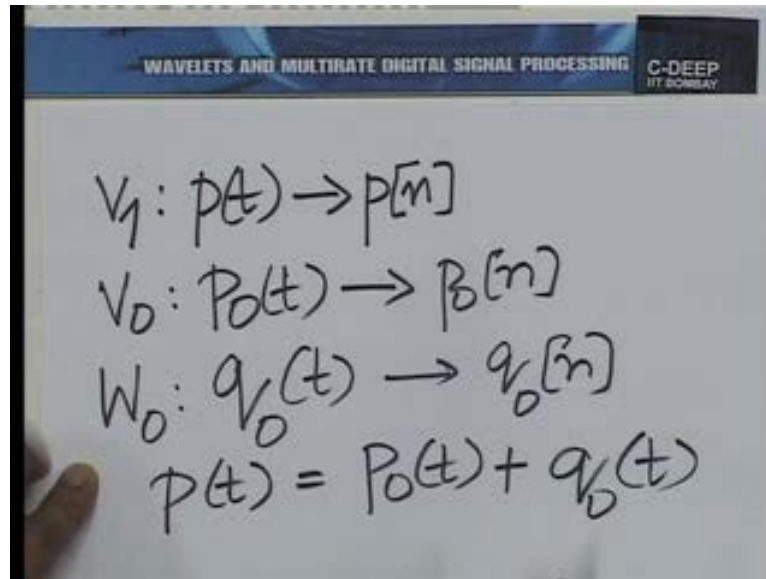 WAVELETS AND MULTIRATE DIGITAL SIGNAL PROCESSING
C-DEEP
IIT BOMBAY
V₁: p(t) → p[n]
V₀: p₀(t) → p₀[n]
W₀: q₀(t) → q₀[n]
p(t) = p₀(t) + q₀(t)